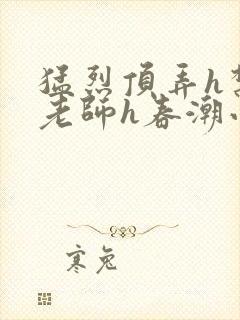 猛烈頂弄h
老師h春潮
寒兔